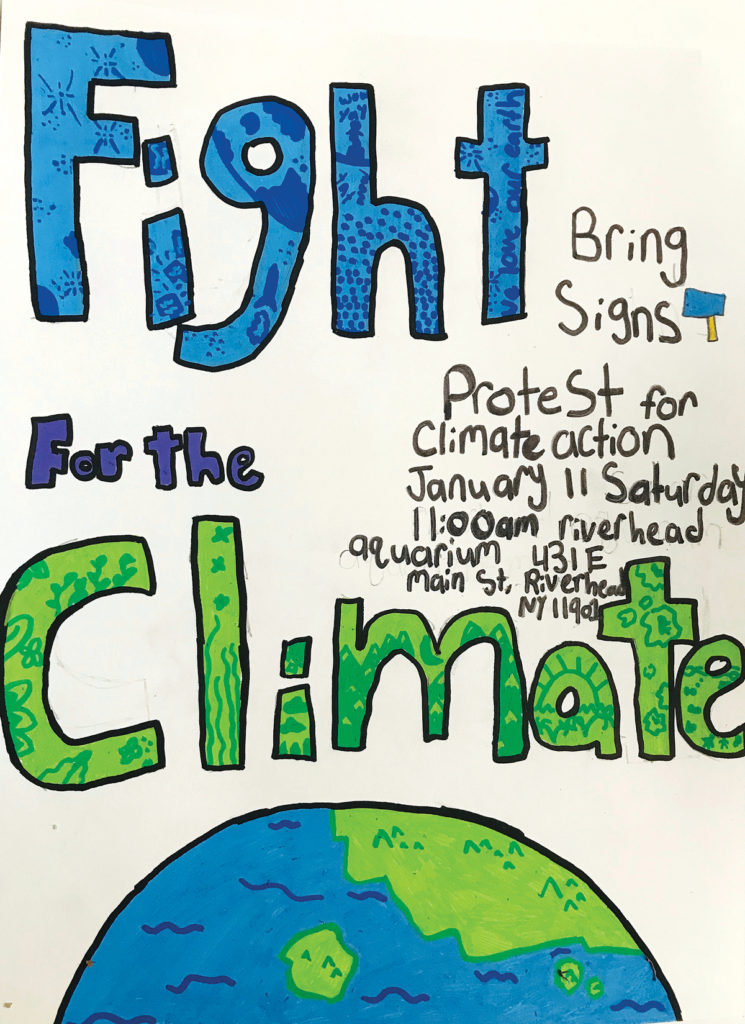 Fight
We love our earth
Bring
Signs
Protest for
climate action
January 11 Saturday
11:00am riverhead
aquarium 431 E
main St, Riverhead
NY 11901
For the
Climate